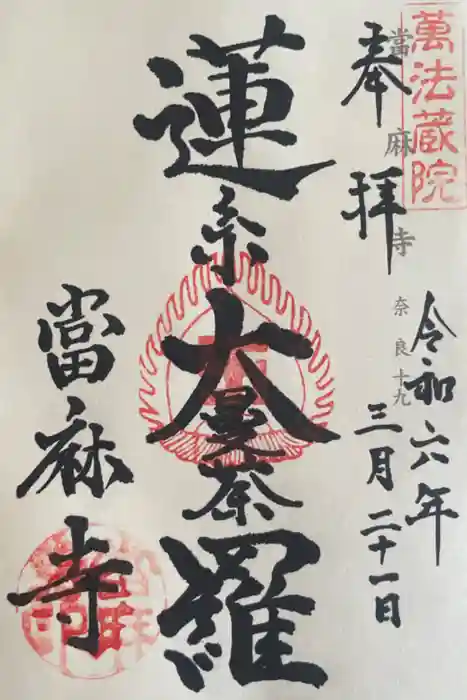 萬法蔵院
奉拝
當麻寺
奈良十九
令和六年
三月二十一日
蓮糸大曼荼羅
當麻寺